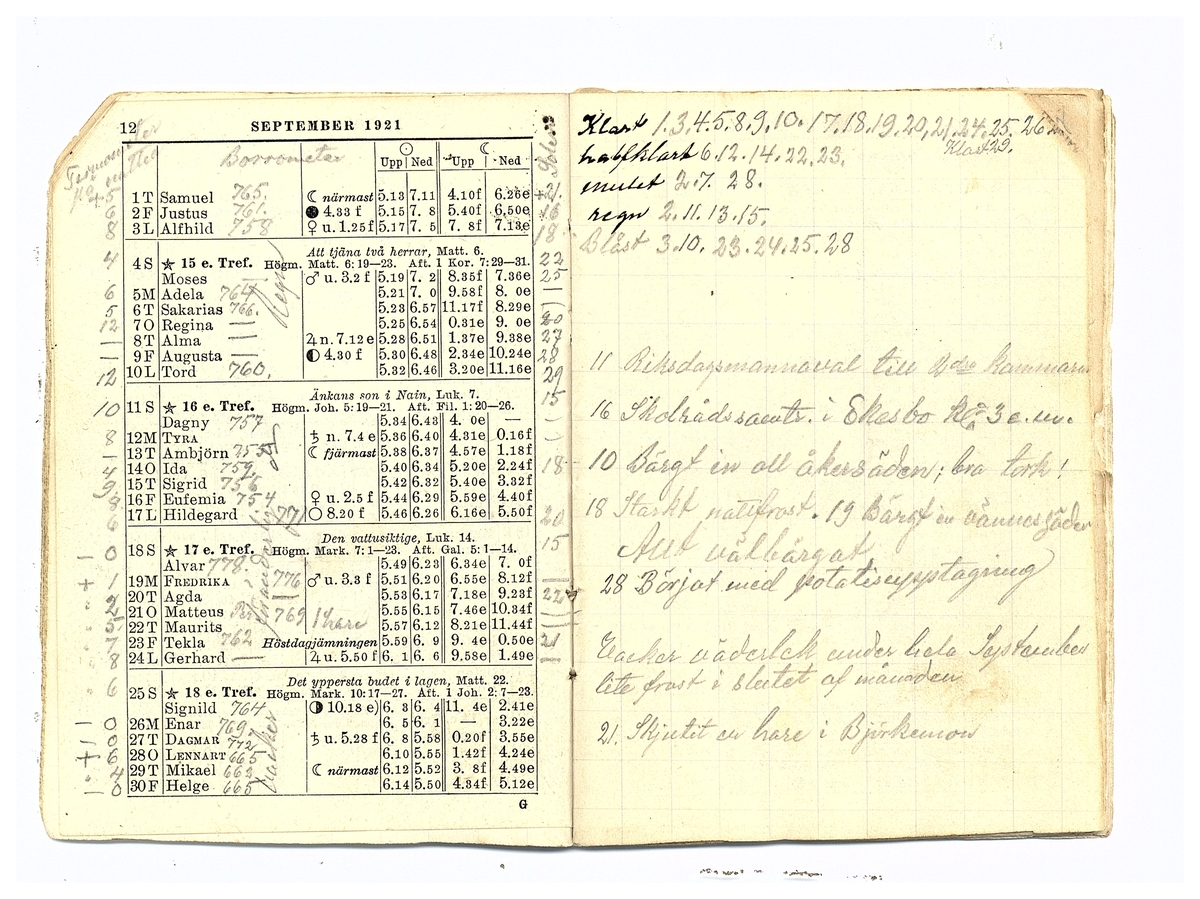 12
SEPTEMBER 1921
Barometer
Upp Ned Upp Ned
1 T Samuel 765. ☾ närmast 5.13 7.11 4.10f 6.26e
2 F Justus 761. ● 4.33 f 5.15 7. 8 5.40f 6.50e
3 L Alfhild 758 ♀ u. 1.25 f 5.17 7. 5 7. 8f 7.13e
Att tjäna två herrar, Matt. 6.
4 S ★ 15 e. Tref. Högm. Matt. 6: 19—23. Aft. 1 Kor. 7: 29—31.
Moses — ♂ u. 3.2 f 5.19 7. 2 8.35f 7.36e
5 M Adela 764 5.21 7. 0 9.58f 8. 0e
6 T Sakarias 766. 5.23 6.57 11.17f 8.29e
7 O Regina — 5.25 6.54 0.31e 9. 0e
8 T Alma — ♃ n. 7.12 e 5.28 6.51 1.37e 9.38e
9 F Augusta — ◐ 4.30 f 5.30 6.48 2.34e 10.24e
10 L Tord 760. 5.32 6.46 3.20e 11.16e
Regn
Änkans son i Nain, Luk. 7.
11 S ★ 16 e. Tref. Högm. Joh. 5: 19—21. Aft. Fil. 1: 20—26.
Dagny 757 5.34 6.43 4. 0e —
12 M TYRA ♄ n. 7.4 e 5.36 6.40 4.31e 0.16f
13 T Ambjörn 755 ☾ fjärmast 5.38 6.37 4.57e 1.18f
14 O Ida 759. 5.40 6.34 5.20e 2.24f
15 T Sigrid 756 5.42 6.32 5.40e 3.32f
16 F Eufemia 754 ♀ u. 2.5 f 5.44 6.29 5.59e 4.40f
17 L Hildegard 771 ○ 8.20 f 5.46 6.26 6.16e 5.50f
Den vattusiktige, Luk. 14.
18 S ★ 17 e. Tref. Högm. Mark. 7: 1—23. Aft. Gal. 5: 1—14.
Alvar 778. 5.49 6.23 6.34e 7. 0f
19 M FREDRIKA 776 ♂ u. 3.3 f 5.51 6.20 6.55e 8.12f
20 T Agda 5.53 6.17 7.18e 9.23f
21 O Matteus 769 1 hare 5.55 6.15 7.46e 10.34f
22 T Maurits 5.57 6.12 8.21e 11.44f
23 F Tekla 762 Höstdagjämningen 5.59 6. 9 9. 4e 0.50e
24 L Gerhard — ♃ u. 5.50 f 6. 1 6. 6 9.58e 1.49e
Det yppersta budet i lagen, Matt. 22.
25 S ★ 18 e. Tref. Högm. Mark. 10: 17—27. Aft. 1 Joh. 2: 7—23.
Signild 764 ◑ 10.18 e) 6. 3 6. 4 11. 4e 2.41e
26 M Enar 769. 6. 5 6. 1 — 3.22e
27 T DAGMAR 772 ♄ u. 5.28 f 6. 8 5.58 0.20f 3.55e
28 O LENNART 665 6.10 5.55 1.42f 4.24e
29 T Mikael 663 ☾ närmast 6.12 5.52 3. 8f 4.49e
30 F Helge 665 6.14 5.50 4.34f 5.12e
vacker
G
Klart 1.3.4.5.8.9.10.17.18.19.20.21.24.25.26
Klart 29.
halfklart 6.12.14.22.23.
mulet 2.7.28.
regn 2.11.13.15.
Blåst 3.10.23.24.25.28
11 Riksdagsmannaval till Kammarn
16 Skolråds i Ekesbo 3 e.m.
10 Bärgt in all åkersäden; bra tork!
18 Starkt nattfrost. 19 Bärgt in
Allt välbärgat
28 Börjat med potatisupptagning
Vacker väderlek under hela September
lite frost i slutet af månaden
21. Skjutet en hare i Björkemon